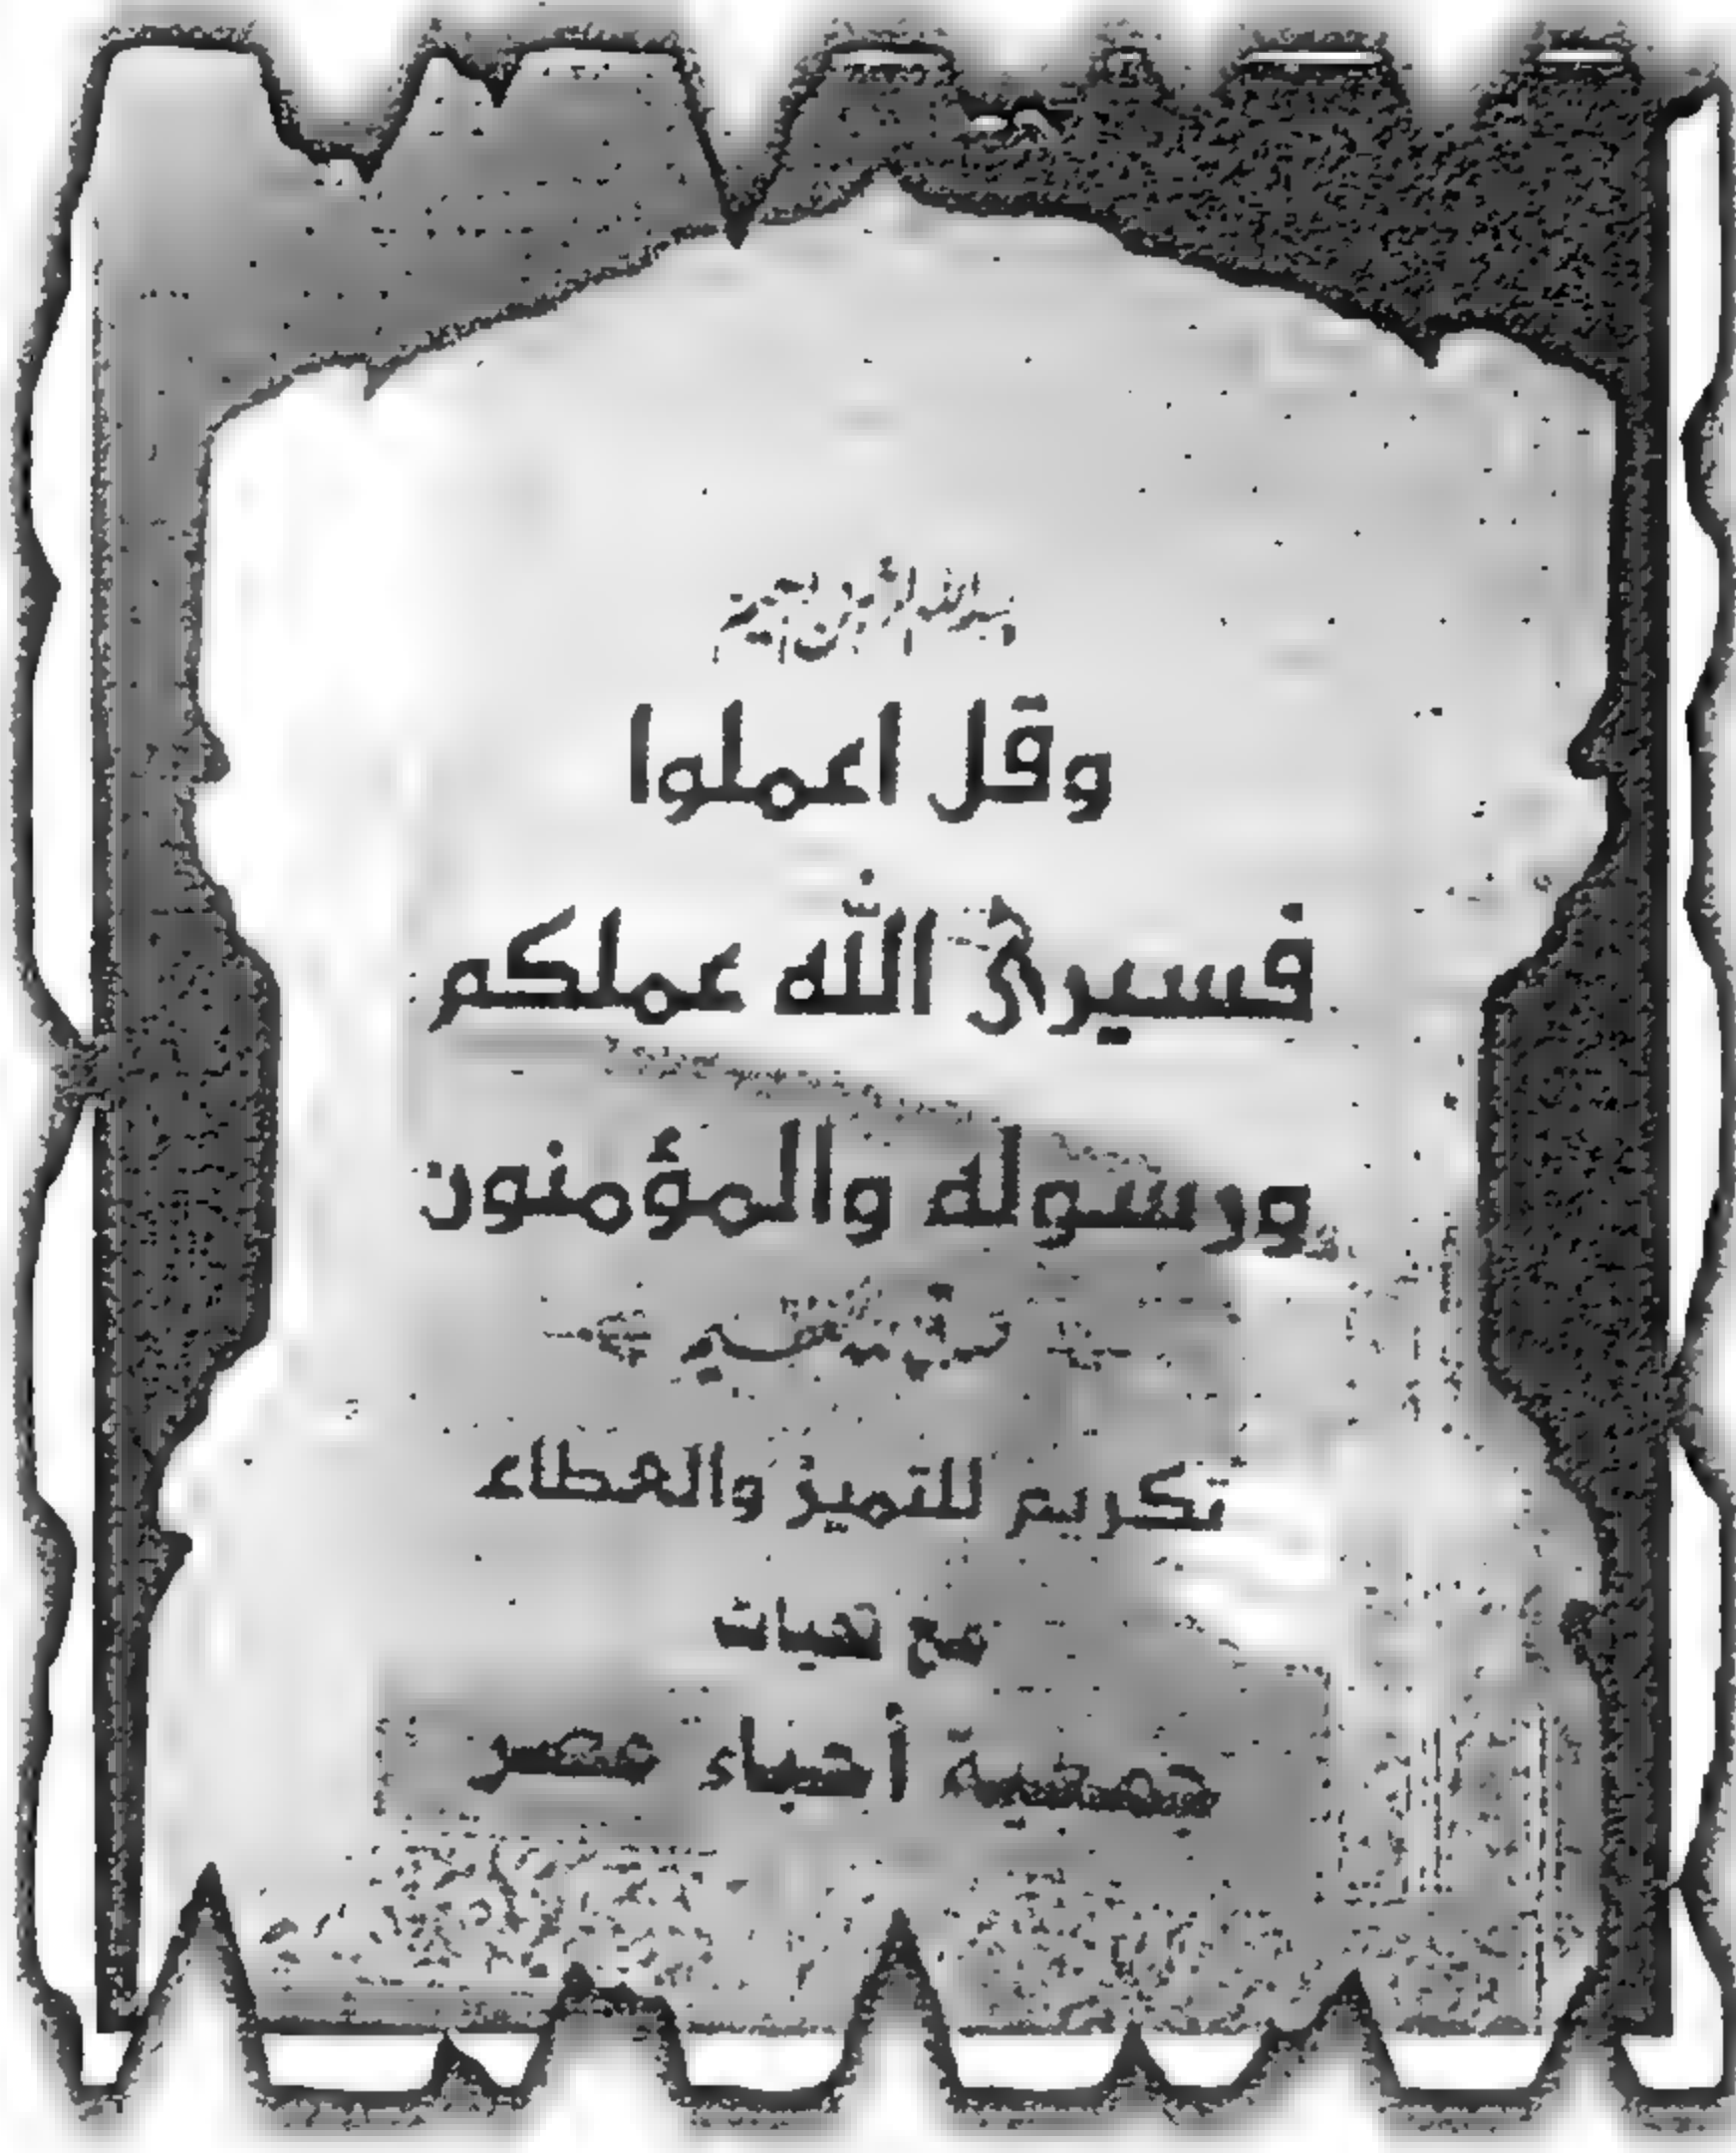 بسم الله الرحمن الرحيم
وقل اعملوا
فسيرى الله عملكم
ورسوله والمؤمنون
تكريم للتميز والعطاء
مع تحيات
جمعية أحباء مصر